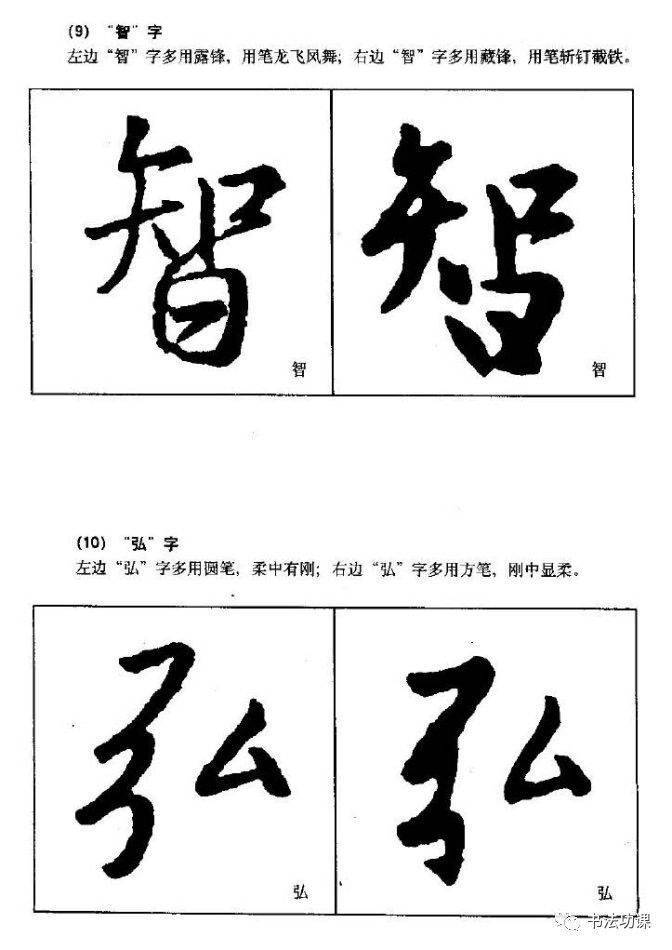 (9) “智”字
左边“智”字多用露锋，用笔龙飞凤舞；右边“智”字多用藏锋，用笔斩钉截铁。
智 智
智 智
(10) “弘”字
左边“弘”字多用圆笔，柔中有刚；右边“弘”字多用方笔，刚中显柔。
弘 弘
弘 弘
书法功课